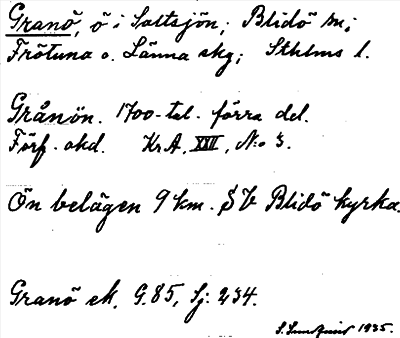 Granö, ö i Saltsjön; Blidö sn;
Frötuna o. Länna skg; Sthlms l.
Grånön. 1700-tal. förra del.
Förf. okd. Kr.A. XXII, N:o 3.
Ön belägen 9 km. SV Blidö kyrka.
Granö ek. G.85, Sj: 234.
S. 1935.